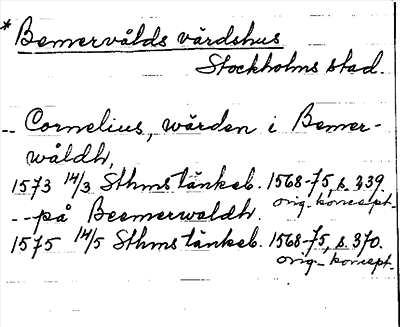 * Bemervålds värdshus
Stockholms stad.
-- Cornelius, wärden i Bemer-
wåldh,
1573 14/3 Sthms tänkeb. 1568-75, s. 339.
orig. koncept.
--på Beemerwaldh.
1575 14/5 Sthms tänkeb. 1568-75, s. 370.
orig. koncept.